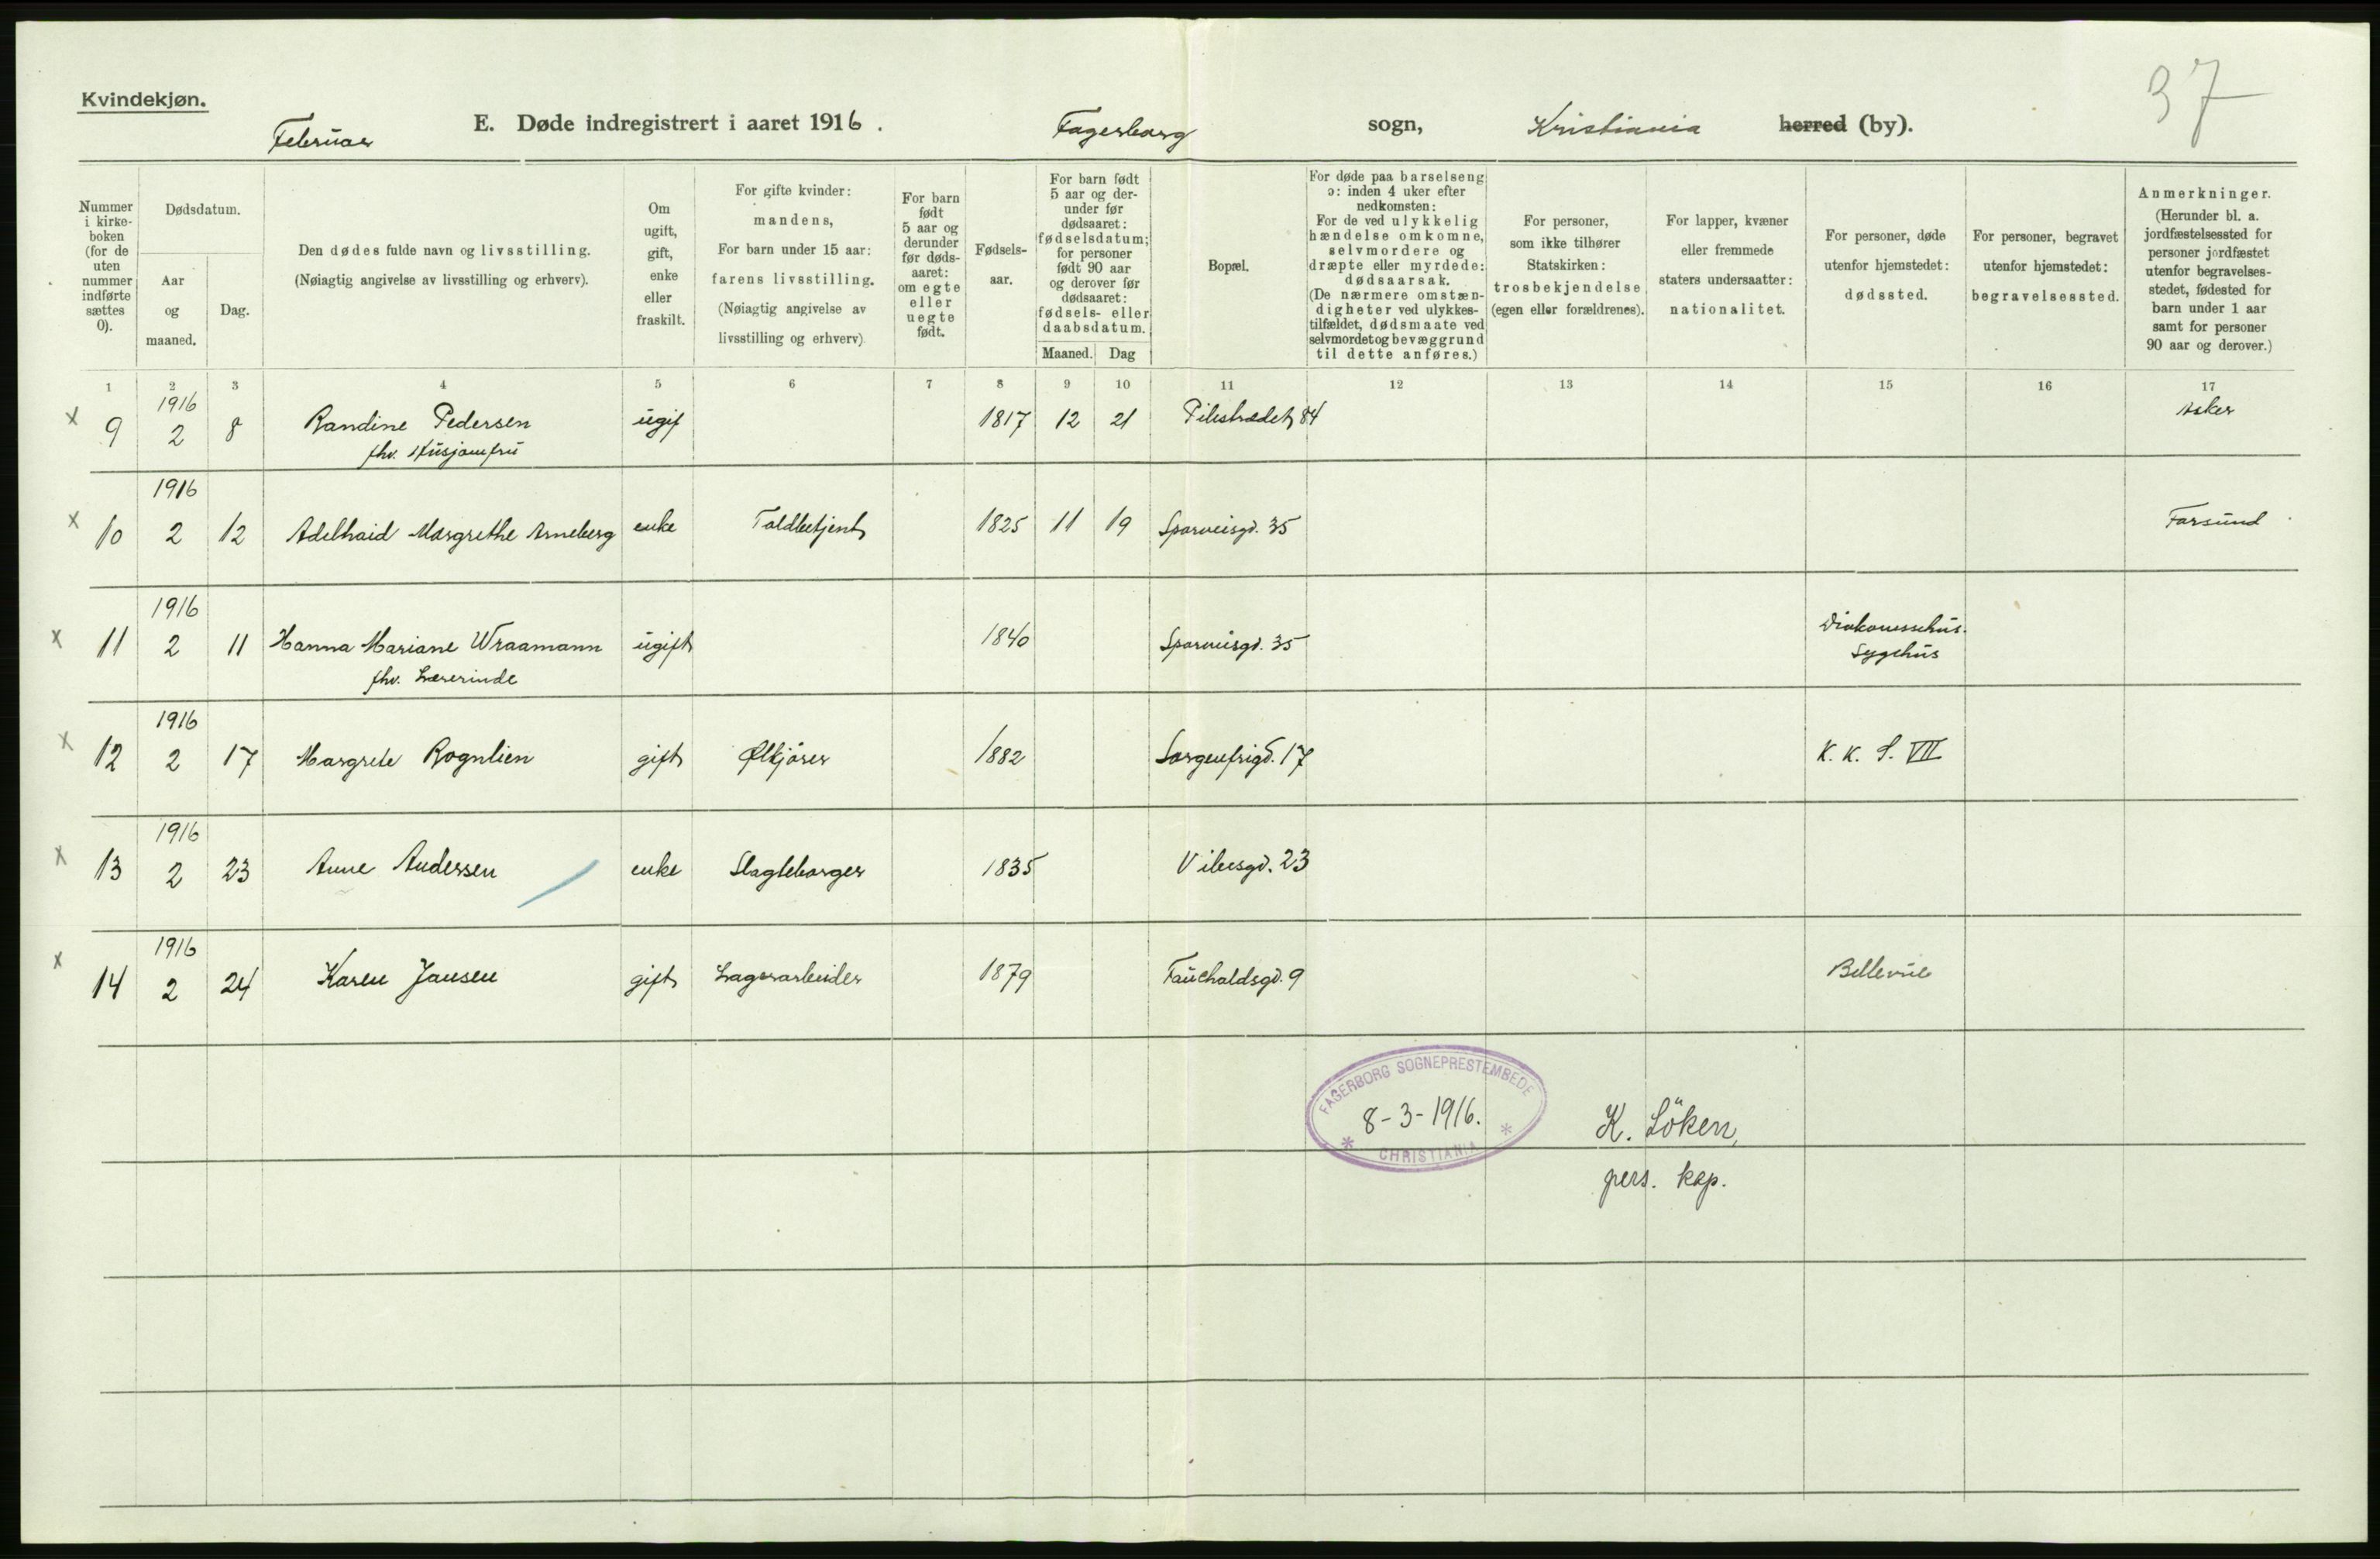 37
Kvindekjøn.
Februar E. Døde indregistrert i aaret 1916. Fagerborg sogn, Kristiania herred (by).
Nummer i kirke-boken (for de uten nummer indførte sættes 0).
Dødsdatum.
Aar og maaned.
Dag.
Den dødes fulde navn og livsstilling.
(Nøiagtig angivelse av livsstilling og erhverv).
Om ugift, gift, enke eller fraskilt.
For gifte kvinder: mandens,
For barn under 15 aar: farens livsstilling.
(Nøiagtig angivelse av livsstilling og erhverv)
For barn født 5 aar og derunder før døds-aaret: om egte eller uegte født.
Fødsels-aar.
For barn født 5 aar og der-under før dødsaaret: fødselsdatum; for personer født 90 aar og derover før dødsaaret: fødsels- eller daabsdatum.
Maaned. Dag
Bopæl.
For døde paa barselseng ɔ: inden 4 uker efter nedkomsten:
For de ved ulykkelig hændelse omkomne, selvmordere og dræpte eller myrdede: dødsaarsak.
(De nærmere omstæn-digheter ved ulykkes-tilfældet, dødsmaate ved selvmordet og bevæggrund til dette anføres.)
For personer, som ikke tilhører Statskirken: trosbekjendelse (egen eller forældrenes).
For lapper, kvæner eller fremmede staters undersaatter: nationalitet.
For personer, døde utenfor hjemstedet: dødssted.
For personer, begravet utenfor hjemstedet: begravelsessted.
Anmerkninger.
(Herunder bl. a. jordfæstelsessted for personer jordfæstet utenfor begravelses-stedet, fødested for barn under 1 aar samt for personer 90 aar og derover.)
1 2 3 4 5 6 7 8 9 10 11 12 13 14 15 16 17
1916
x 9 2 8 Randine Pedersen ugif 1817 12 21 Pilestrædet 84 Asker
fhv. Husjomfru
1916
x 10 2 12 Adelhaid Margrethe Arneberg enke Toldbetjent 1825 11 19 Sporveisgd. 35 Farsund
1916
x 11 2 11 Hanna Mariane Wraamann ugift 1840 Sporveisgd. 35 Diakonissehus.
fhv. Lærerinde Sygehus
1916
x 12 2 17 Margrete Rognlien gift Ølkjører 1882 Sorgenfrigd. 17 K. K. S. VII
1916
x 13 2 23 Anne Andersen enke Slagteborger 1835 Vibesgd. 23
1916
x 14 2 24 Karen Jansen gift Lagerarbeider 1879 Fauchaldsgd. 9 Bellevue
FAGERBORG SOGNEPRESTEMBEDE
8-3-1916.
* CHRISTIANIA *
K. Löken,
pers. kap.